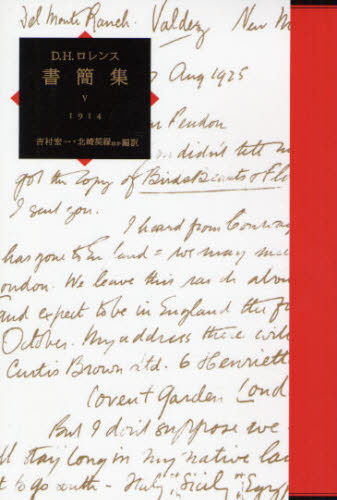 Del Monte Ranch. Valdez New M
Aug 1925
D.H.ロレンス
書簡集
V
1914
吉村宏一・北崎契縁ほか編訳
didn't tell me
got the copy of Birds Beasts & Flo
I sent you.
I heard from
has gone to = we may
ondon. We leave this ranch abou
and expect to be in England the fi
October. My address there will
Curtis Brown Ltd. 6 Henriett
Covent Garden. Lond
But I don't suppose we
ll stay long in my native la
t to go south — Italy, Sicily Egyp